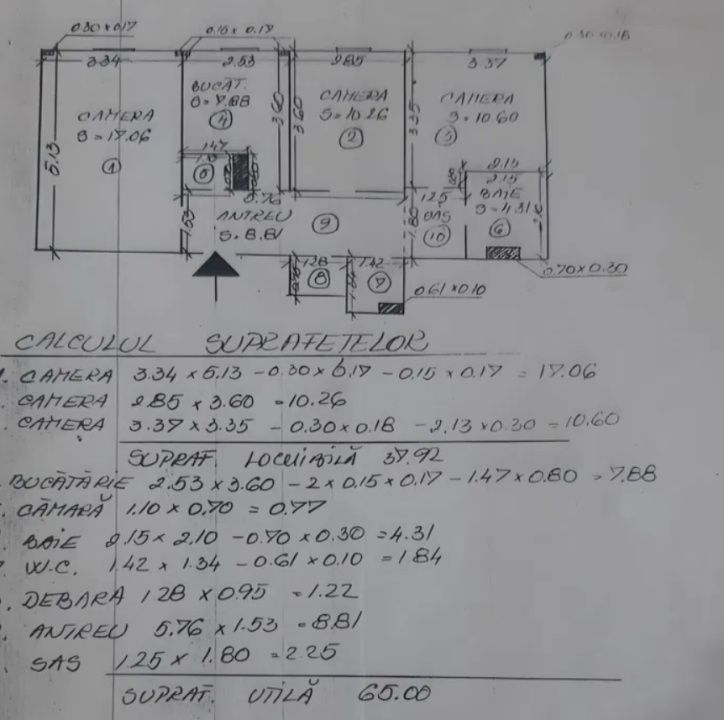 0.30 x 0.17
0.15 x 0.17
0.30 x 0.18
3.34
2.53
2.85
3.37
BUCĂT.
S = 7.88
4
CAMERA
S = 17.06
1
CAMERA
S = 10.26
2
CAMERA
S = 10.60
3
5.13
3.60
3.60
3.35
1.47
5
2.15
2.15
BAIE
S = 4.31
6
1.25
SAS
10
1.80
5.76
ANTREU
S = 8.81
9
1.53
1.28
8
1.42
7
0.61 x 0.10
0.70 x 0.30
CALCULUL SUPRAFEȚELOR
CAMERA 3.34 x 5.13 - 0.30 x 0.17 - 0.15 x 0.17 = 17.06
CAMERA 2.85 x 3.60 = 10.26
CAMERA 3.37 x 3.35 - 0.30 x 0.18 - 2.13 x 0.30 = 10.60
SUPRAF. LOCUIBILĂ 37.92
BUCĂTĂRIE 2.53 x 3.60 - 2 x 0.15 x 0.17 - 1.47 x 0.80 = 7.88
CĂMARĂ 1.10 x 0.70 = 0.77
BAIE 2.15 x 2.10 - 0.70 x 0.30 = 4.31
W.C. 1.42 x 1.34 - 0.61 x 0.10 = 1.84
DEBARA 1.28 x 0.95 = 1.22
ANTREU 5.76 x 1.53 = 8.81
SAS 1.25 x 1.80 = 2.25
SUPRAF. UTILĂ 65.00